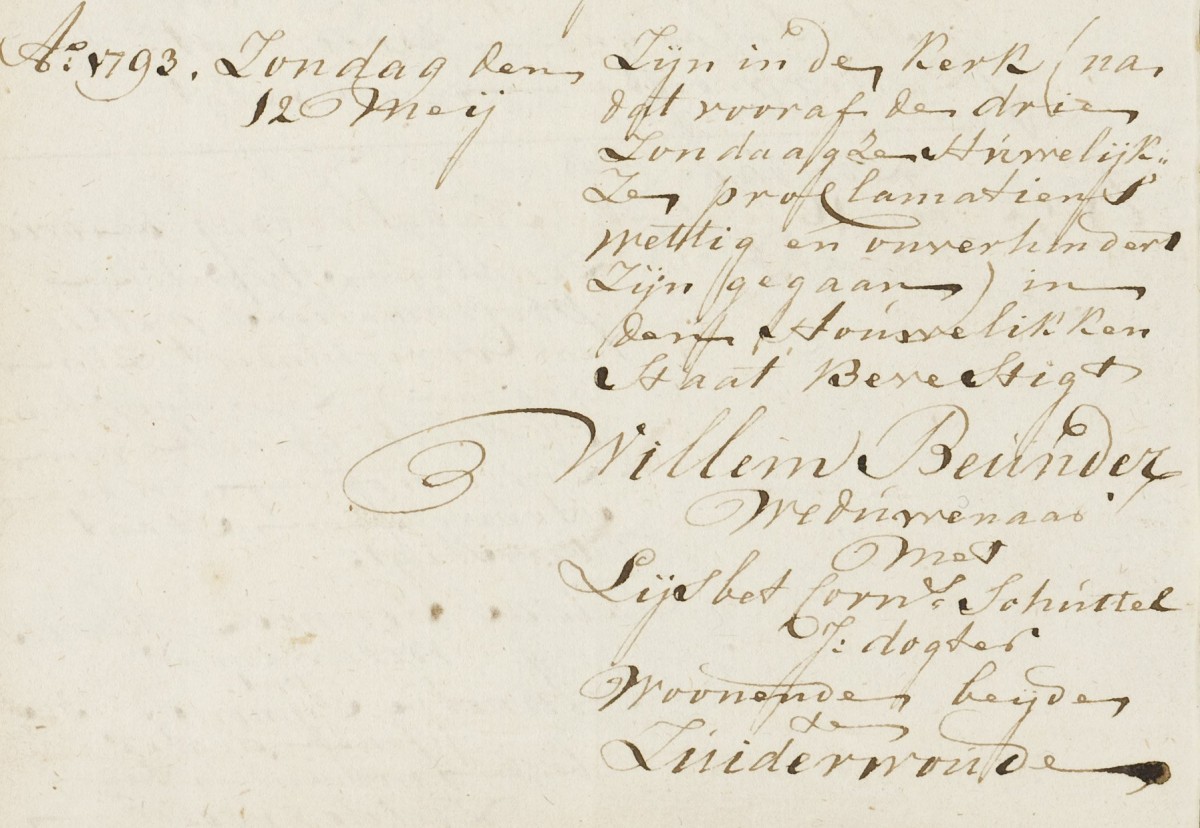 Ao: 1793. Zondag den
12 Meij
Zijn in de kerk (na
dat vooraf de drie
Zondaagze Huwelijk„
Ze proclamatien
wettig en onverhindert
Zijn gegaan) in
den Houwelikken
Staat Bevestigt
Willem Beúnder
Wedúwenaar
Met
Lijsbet Corn.s Schúttel
J: dogter
Woonende beijde
te
Zúiderwoúde